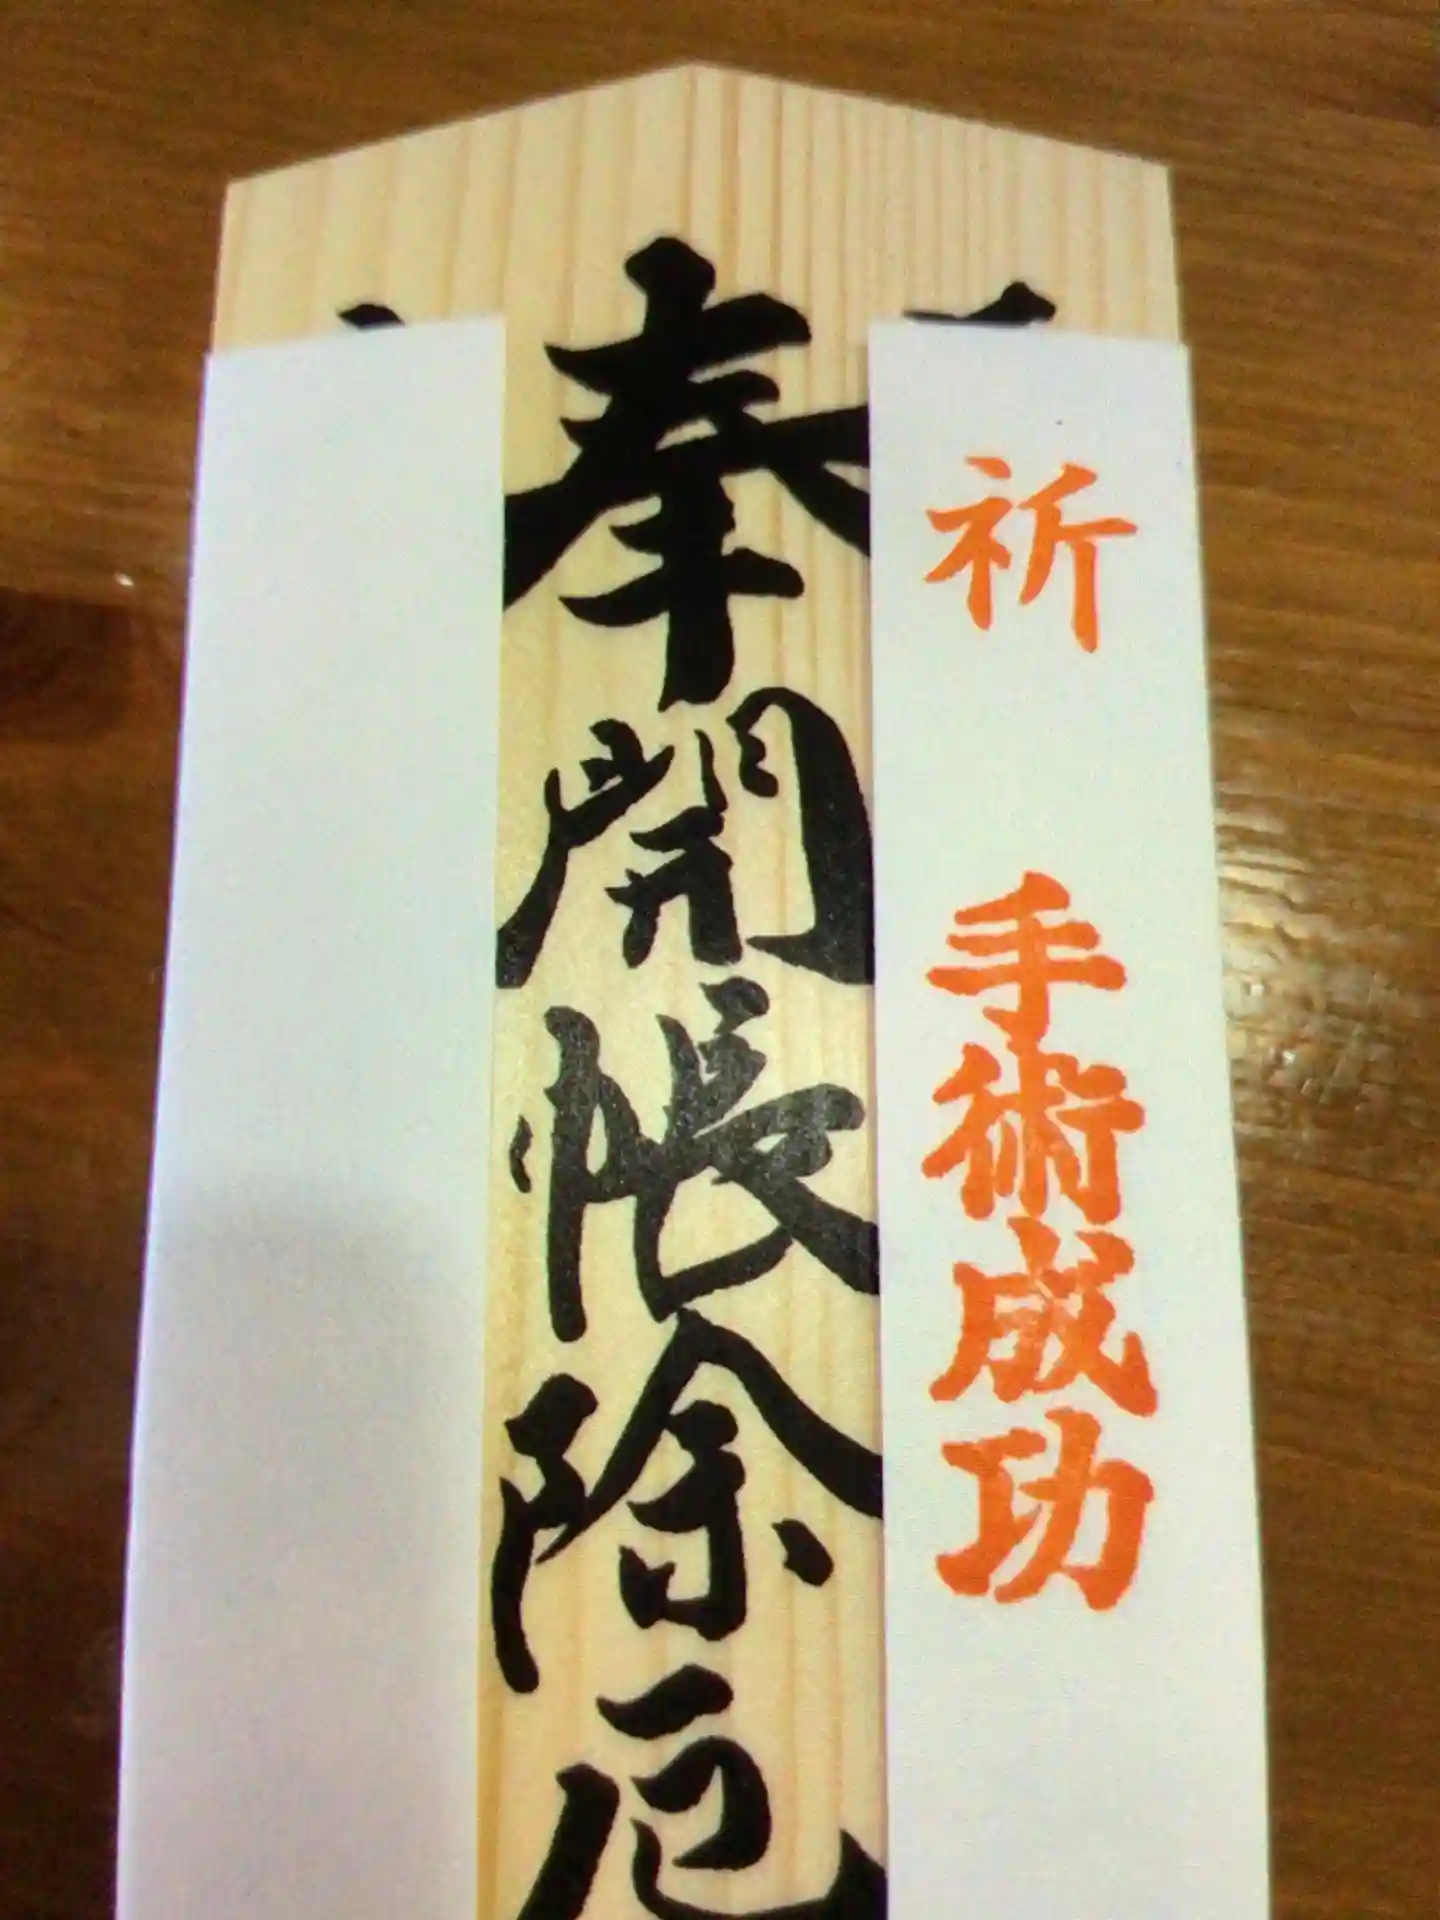 祈 手術成功
奉開帳除厄